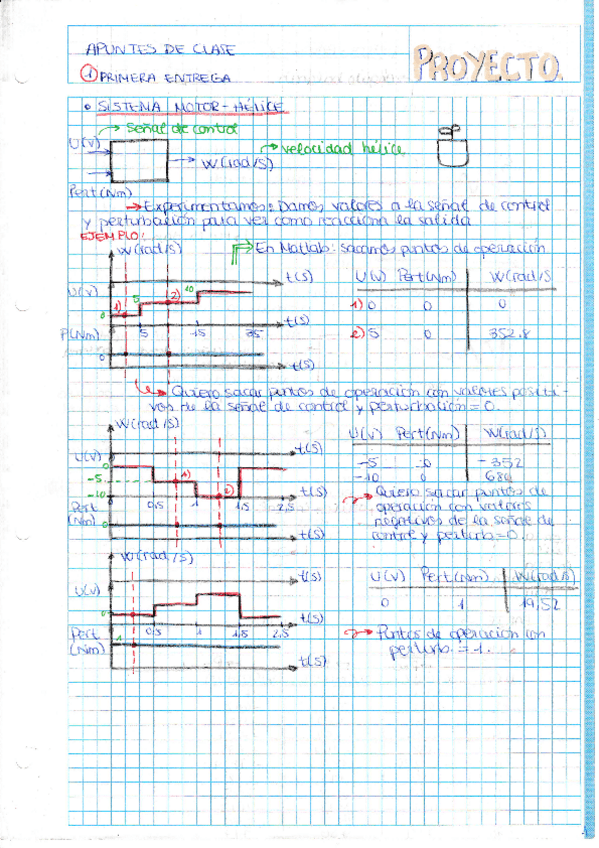 APUNTES DE CLASE
PROYECTO.
1 PRIMERA ENTREGA
• SISTEMA MOTOR-HÉLICE
Señal de control
U(v)
W(rad/s)
velocidad hélice
Pert(Nm)
→ Experimentamos: Damos valores a la señal de control
y perturbación para ver como reacciona la salida
EJEMPLO:
W(rad/s)
En Matlab: sacamos puntos de operación
t(s)
U(v) Pert(Nm) W(rad/s
U(v)
1) 5 2) 10
0
1) 0 0 0
t(s)
P(Nm) 5 15 35
2) 5 0 352.8
0
t(s)
Quiero sacar puntos de operación con valores positi-
vos de la señal de control y perturbación = 0.
W(rad/s)
U(v) Pert(Nm) W(rad/s)
U(v) 0
t(s)
-5 0 -352
-5 1)
-10 0 680
-10 2) t(s)
Pert 0,5 1 1,5 2,5
(Nm) 0
t(s)
Quiero sacar puntos de
operación con valores
negativos de la señal de
control y perturb=0.
W(rad/s)
t(s)
U(v) Pert(Nm) W(rad/s)
U(v)
0 1 19,52
0
t(s)
Pert 1 0,5 1 1,5 2,5
(Nm)
t(s)
Puntos de operacion con
perturb. = 1.